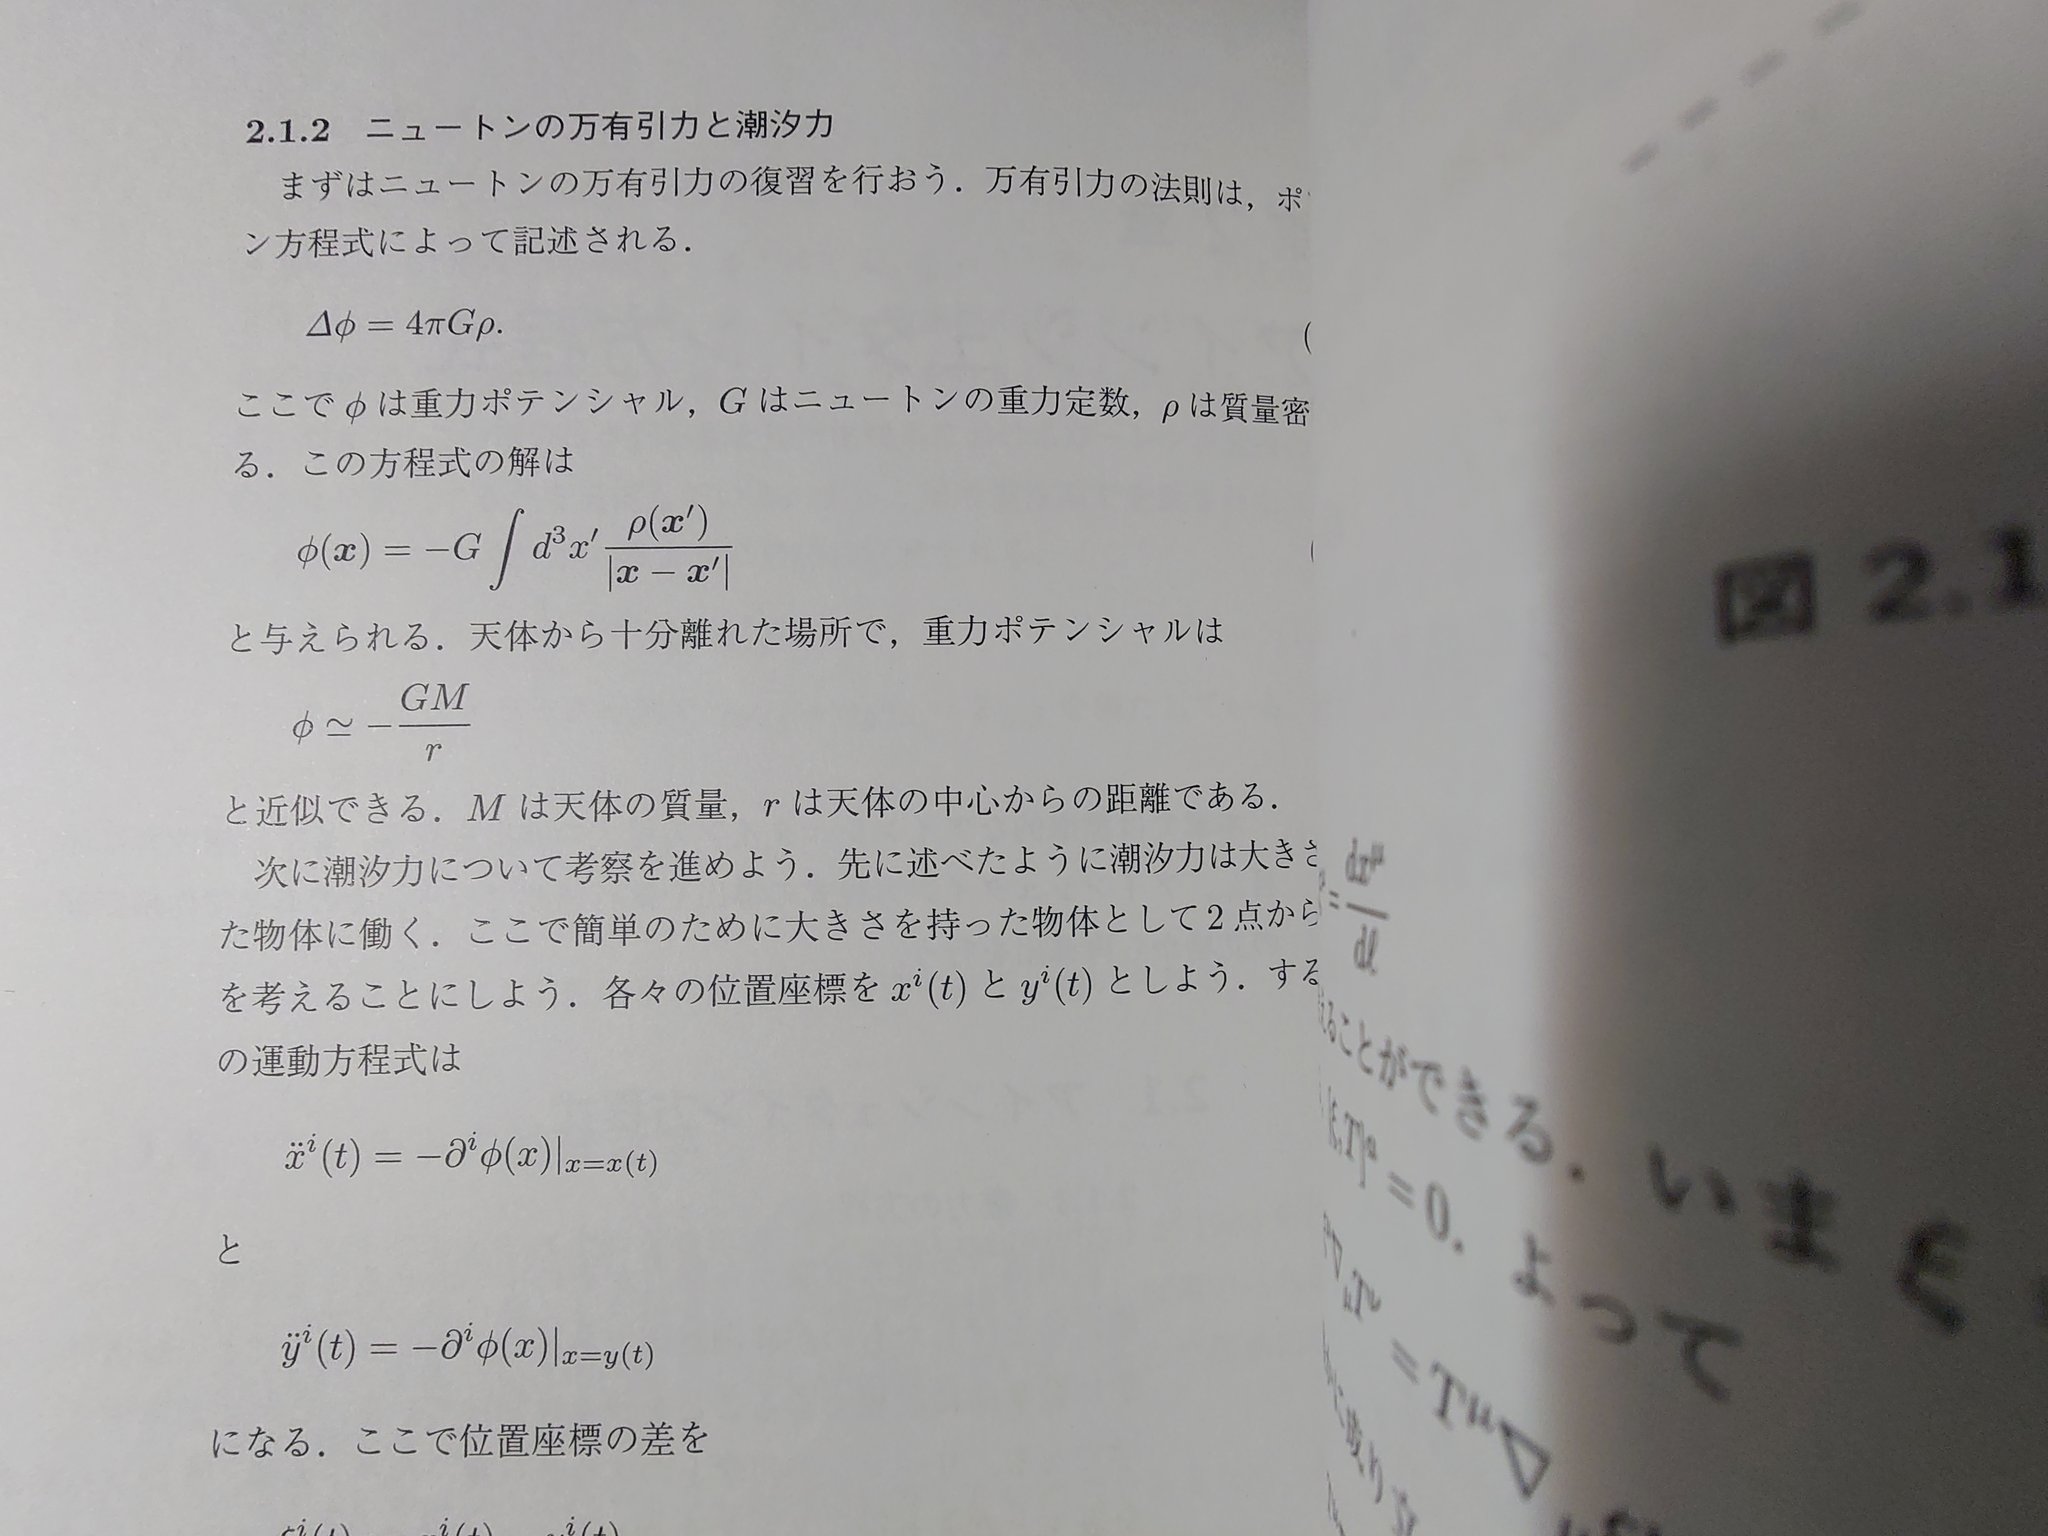 2.1.2 ニュートンの万有引力と潮汐力
まずはニュートンの万有引力の復習を行おう．万有引力の法則は，ポ
ン方程式によって記述される．
Δϕ = 4πGρ.
ここで ϕ は重力ポテンシャル，G はニュートンの重力定数，ρ は質量密
る．この方程式の解は
ϕ(x) = −G ∫ d³x′ ρ(x′) / |x − x′|
と与えられる．天体から十分離れた場所で，重力ポテンシャルは
ϕ ≃ − GM / r
と近似できる．M は天体の質量，r は天体の中心からの距離である．
次に潮汐力について考察を進めよう．先に述べたように潮汐力は大きさ
た物体に働く．ここで簡単のために大きさを持った物体として 2 点から
を考えることにしよう．各々の位置座標を xⁱ(t) と yⁱ(t) としよう．する
の運動方程式は
ẍⁱ(t) = −∂ⁱϕ(x)|x=x(t)
と
ÿⁱ(t) = −∂ⁱϕ(x)|x=y(t)
になる．ここで位置座標の差を
図 2.1
= dxμ / dl
ることができる．いま
= 0. よって